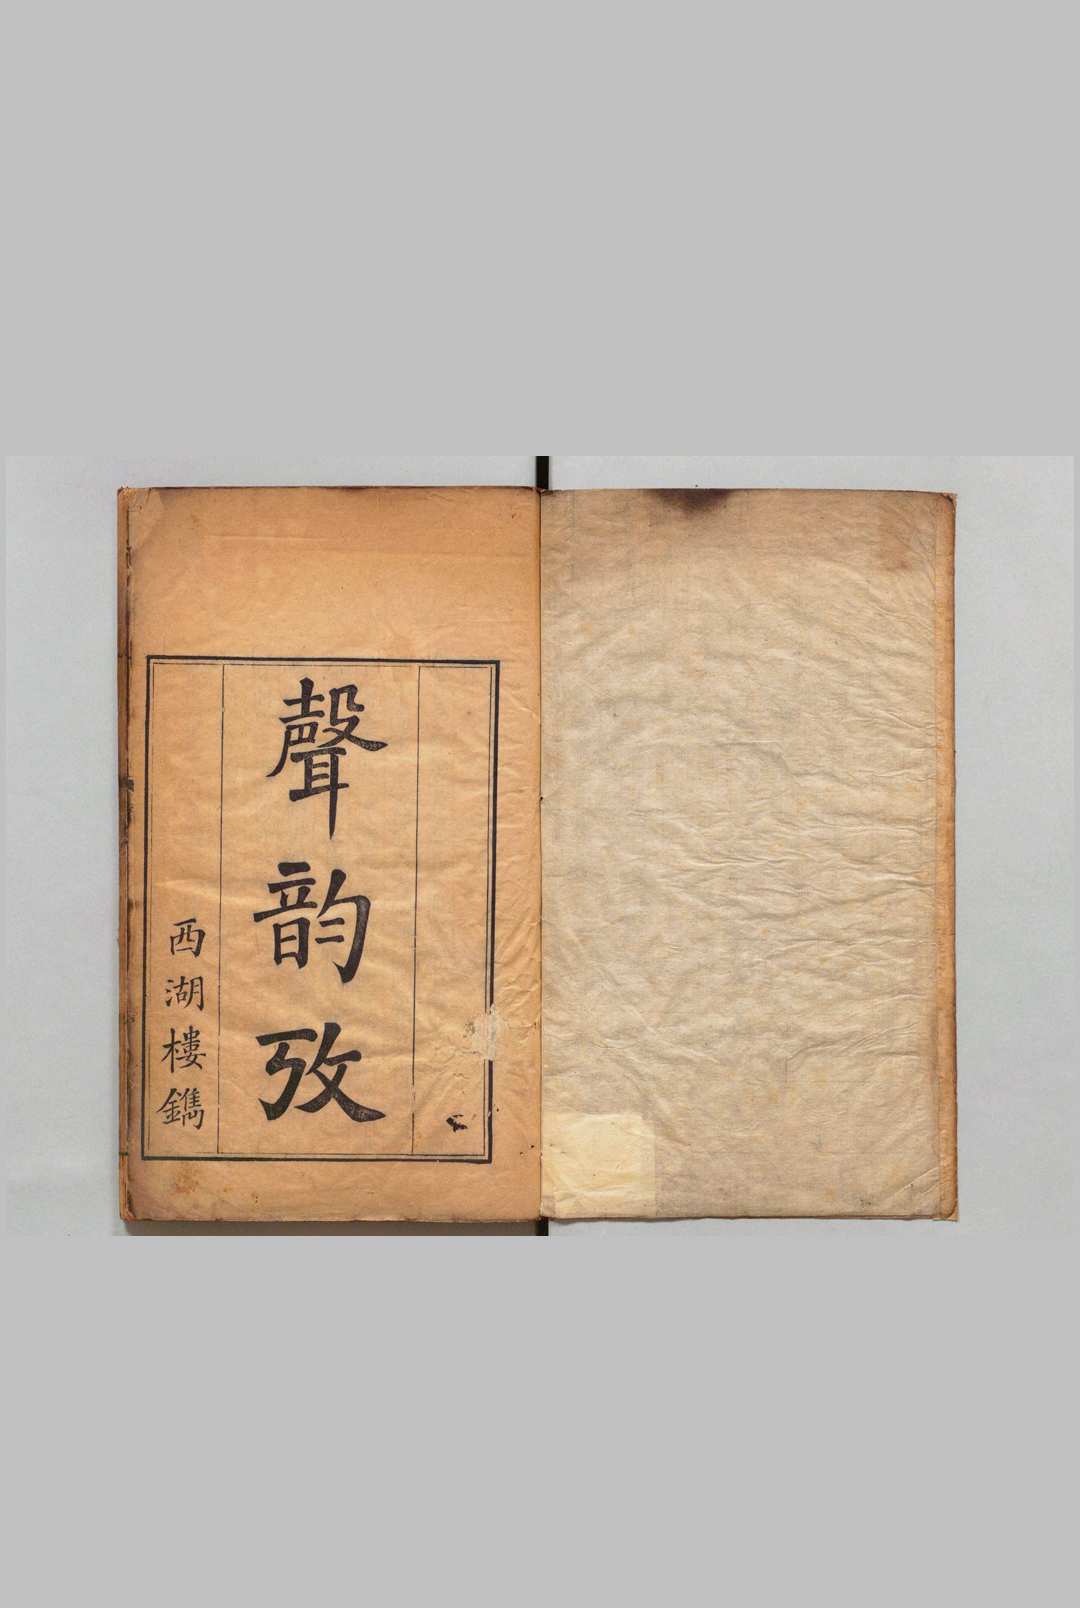 聲韵攷
西湖樓鐫